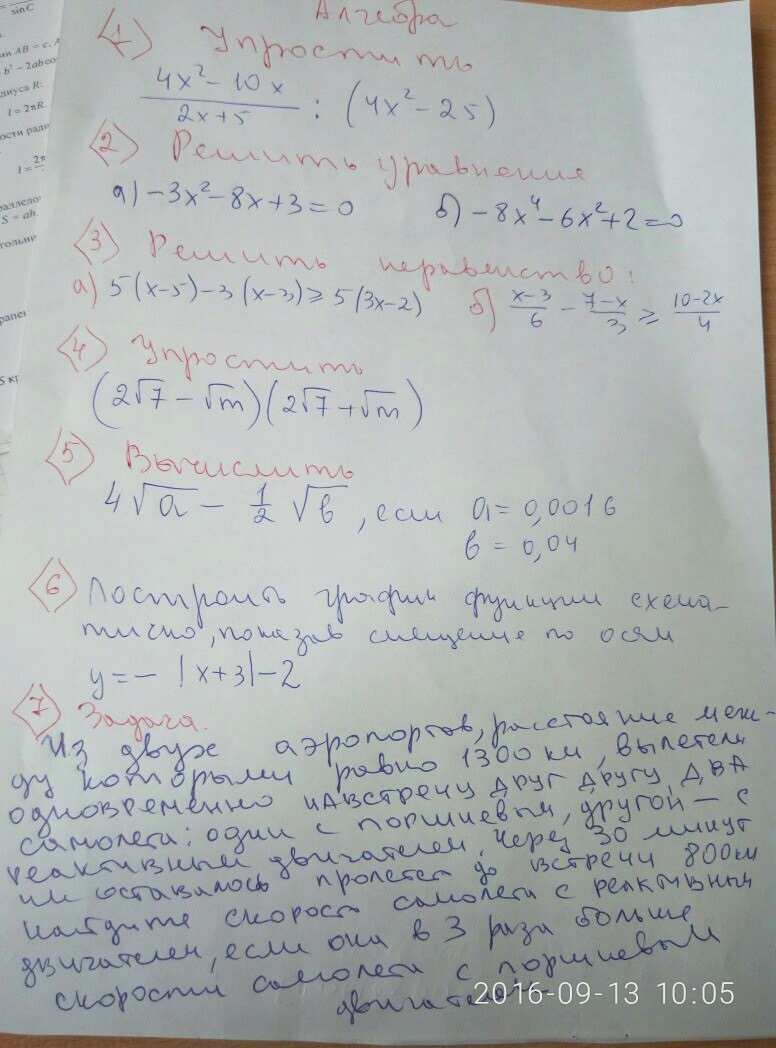 sin C
ии AB = c, A
b² − 2ab co
диуса R:
l = 2πR.
ости ради
l = 2π
раллело
S = ah.
гольни
рапе
S кр
Алгебра
1) Упростить
4x² − 10x / 2x+5 : (4x² − 25)
2) Решить уравнение
а) −3x² − 8x + 3 = 0 б) −8x⁴ − 6x² + 2 = 0
3) Решить неравенство:
а) 5(x−5) − 3(x−3) ⩾ 5(3x−2) б) x−3/6 − 7−x/3 ⩾ 10−2x/4
4) Упростить
(2√7 − √m)(2√7 + √m)
5) Вычислить
4√a − 1/2 √b, если a = 0,0016
b = 0,04
6) Построить график функции схема-
тично, показав смещение по осям
y = − |x+3| − 2
7) Задача.
Из двух аэропортов, расстояние меж-
ду которыми равно 1300 км, вылетели
одновременно навстречу друг другу два
самолета: один с поршневым, другой – с
реактивным двигателем. Через 30 минут
им оставалось пролететь до встречи 800 км
найдите скорость самолета с реактивным
двигателем, если она в 3 раза больше
скорости самолета с поршневым
двигателем.
2016-09-13 10:05